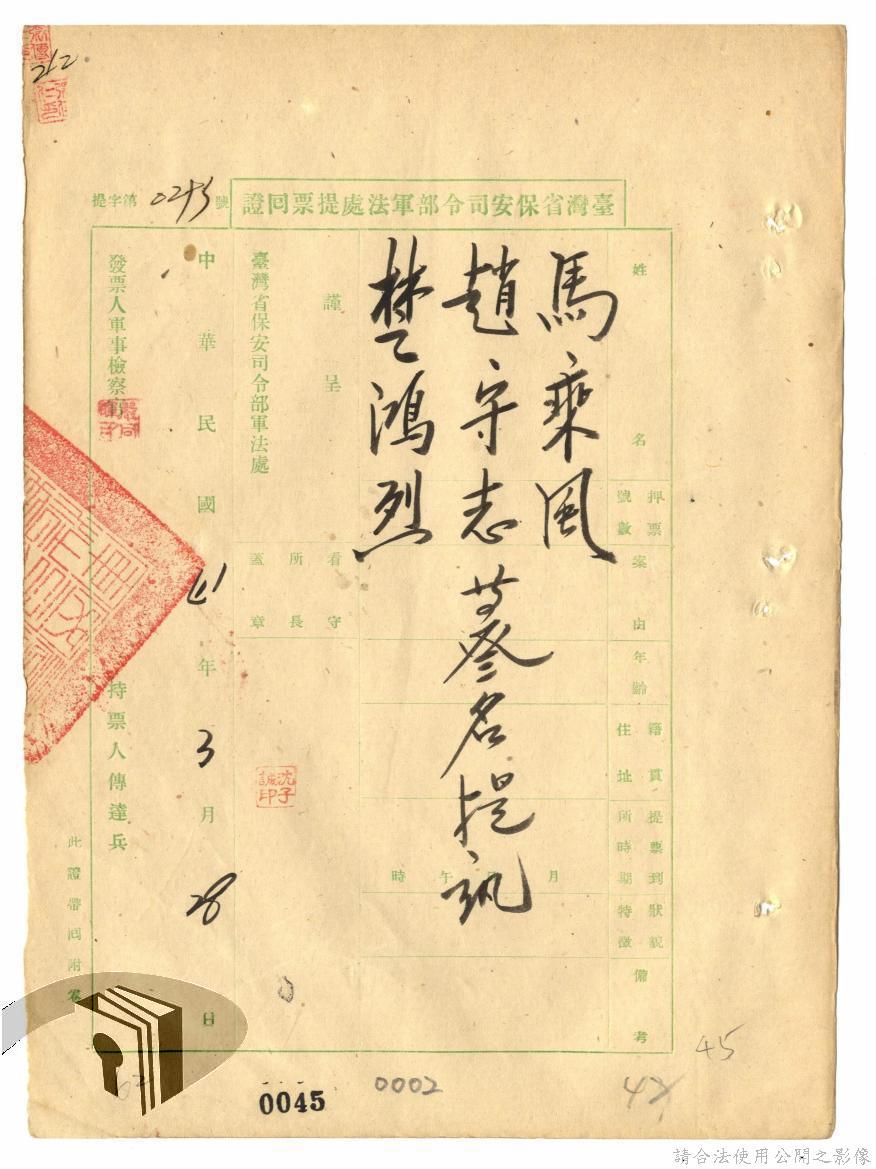 臺灣省保安司令部軍法處提票回證
提字第0243號
姓名
押票號數
案由
年齡
籍貫住址
提票到所時期
狀貌特徵
備考
馬乘風
趙守志 等叄名提訊
楚鴻烈
月 午 時
謹呈
臺灣省保安司令部軍法處
看守所長蓋章
沈子誠印
中華民國41年3月28日
發票人軍事檢察官
持票人傳達兵
此證帶回附卷
212
45
42
0002
0045
請合法使用公開之影像